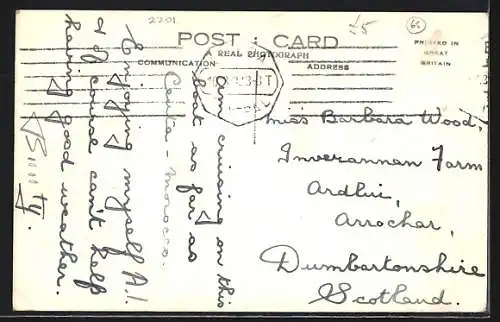 2201
£5
POST CARD
A REAL PHOTOGRAPH
COMMUNICATION
ADDRESS
PRINTED IN
GREAT
BRITAIN
Am cruising on this
boat as far as
Ceuta - Morocco.
Enjoying myself A.1.
& of course can't help
having good weather.
Miss Barbara Wood,
Inverannan Farm
Ardlui,
Arrochar,
Dumbartonshire
Scotland.